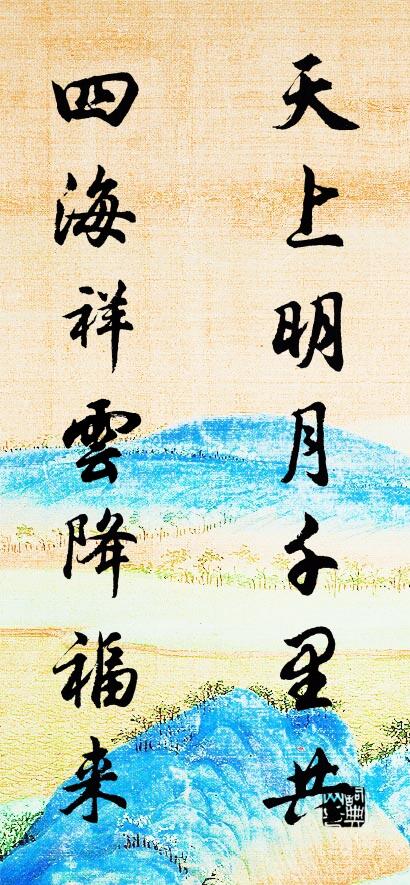 天上明月千里共
四海祥雲降福来